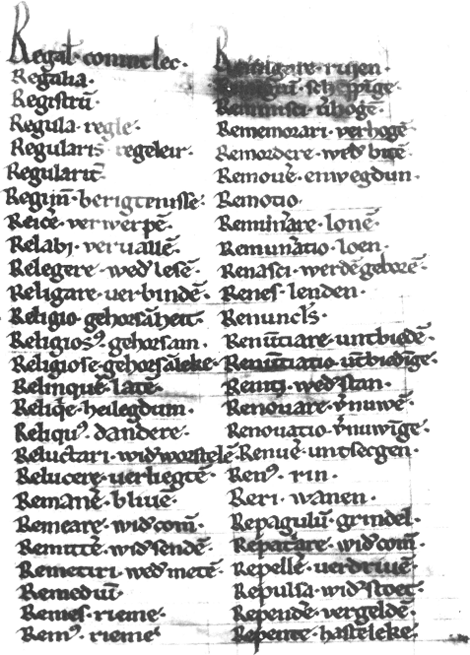 Regal̄· coninclec·
Regalia·
Registrū·
Regula· regle·
Regularis̄· regeleir·
Regularit̄·
Regim̄· berigtenisse·
Reic̄e· verwerpē·
Relabi· veruallē·
Relegere· wedꝰlesē·
Religare· uerbindē·
Religio· gehorsāheit·
Religiosꝰ· gehorsam·
Religiose· gehorsāleke·
Relinquē· latē·
Reliqīe· heilegdum·
Reliquꝰ· dandere·
Reluctari· widꝰworstelē·
Relucere· uerliegtē·
Remanē· bliue·
Remeare· widꝰcom̄·
Remittē· widꝰsendē·
Remetiri· wedꝰmetē·
Remediū·
Remes· rieme·
Remꝰ· rieme·
Remigare· rujen·
Reminisci· v̄hogē·
Rememorari· verhogē·
Remordere· wedꝰbitē·
Remouē· enwegdun·
Remotio·
Remun̄are· lonē·
Remun̄atio· loen·
Renasci· werdēgeborē·
Renes· lenden·
Renuncls̄·
Renūtiare· untbiedē·
Renūtiatio· ūtbiedīge·
Reniti· wedꝰstan·
Renouare· v̄nuwē·
Renouatio· v̄nuwīge·
Renuē· untsecgen·
Renꝰ· rin·
Reri· wanen·
Repagulū· grindel·
Repat̄are· widꝰcom̄·
Repellē· uerdriuē·
Repulsa· widꝰstoet·
Rependē· vergeldē·
Repente· hasteleke·